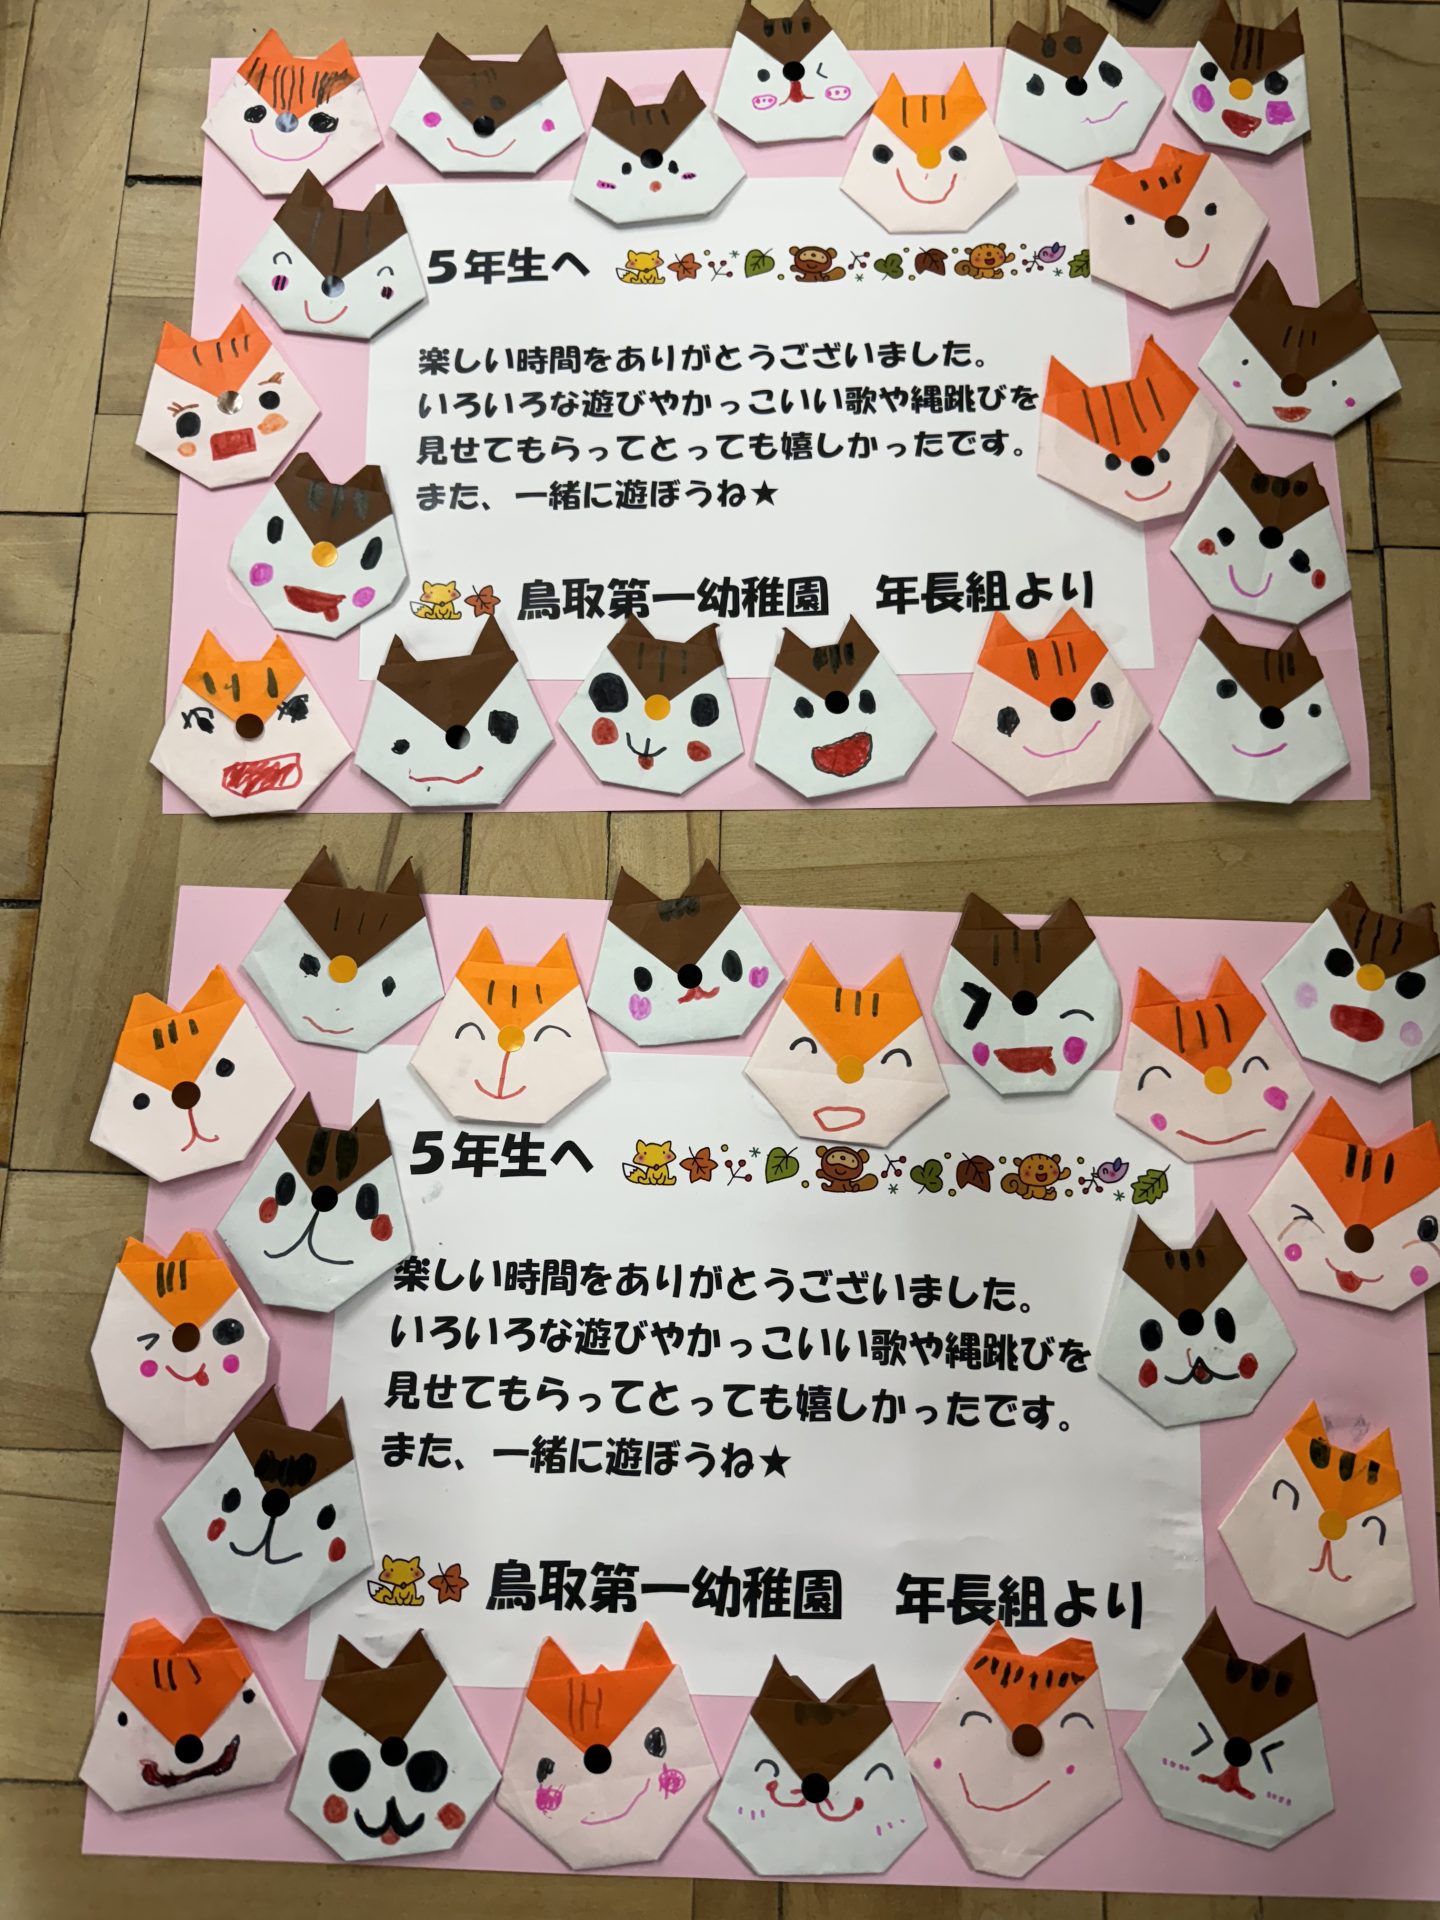 ５年生へ
楽しい時間をありがとうございました。
いろいろな遊びやかっこいい歌や縄跳びを
見せてもらってとっても嬉しかったです。
また、一緒に遊ぼうね★
鳥取第一幼稚園　年長組より
５年生へ
楽しい時間をありがとうございました。
いろいろな遊びやかっこいい歌や縄跳びを
見せてもらってとっても嬉しかったです。
また、一緒に遊ぼうね★
鳥取第一幼稚園　年長組より